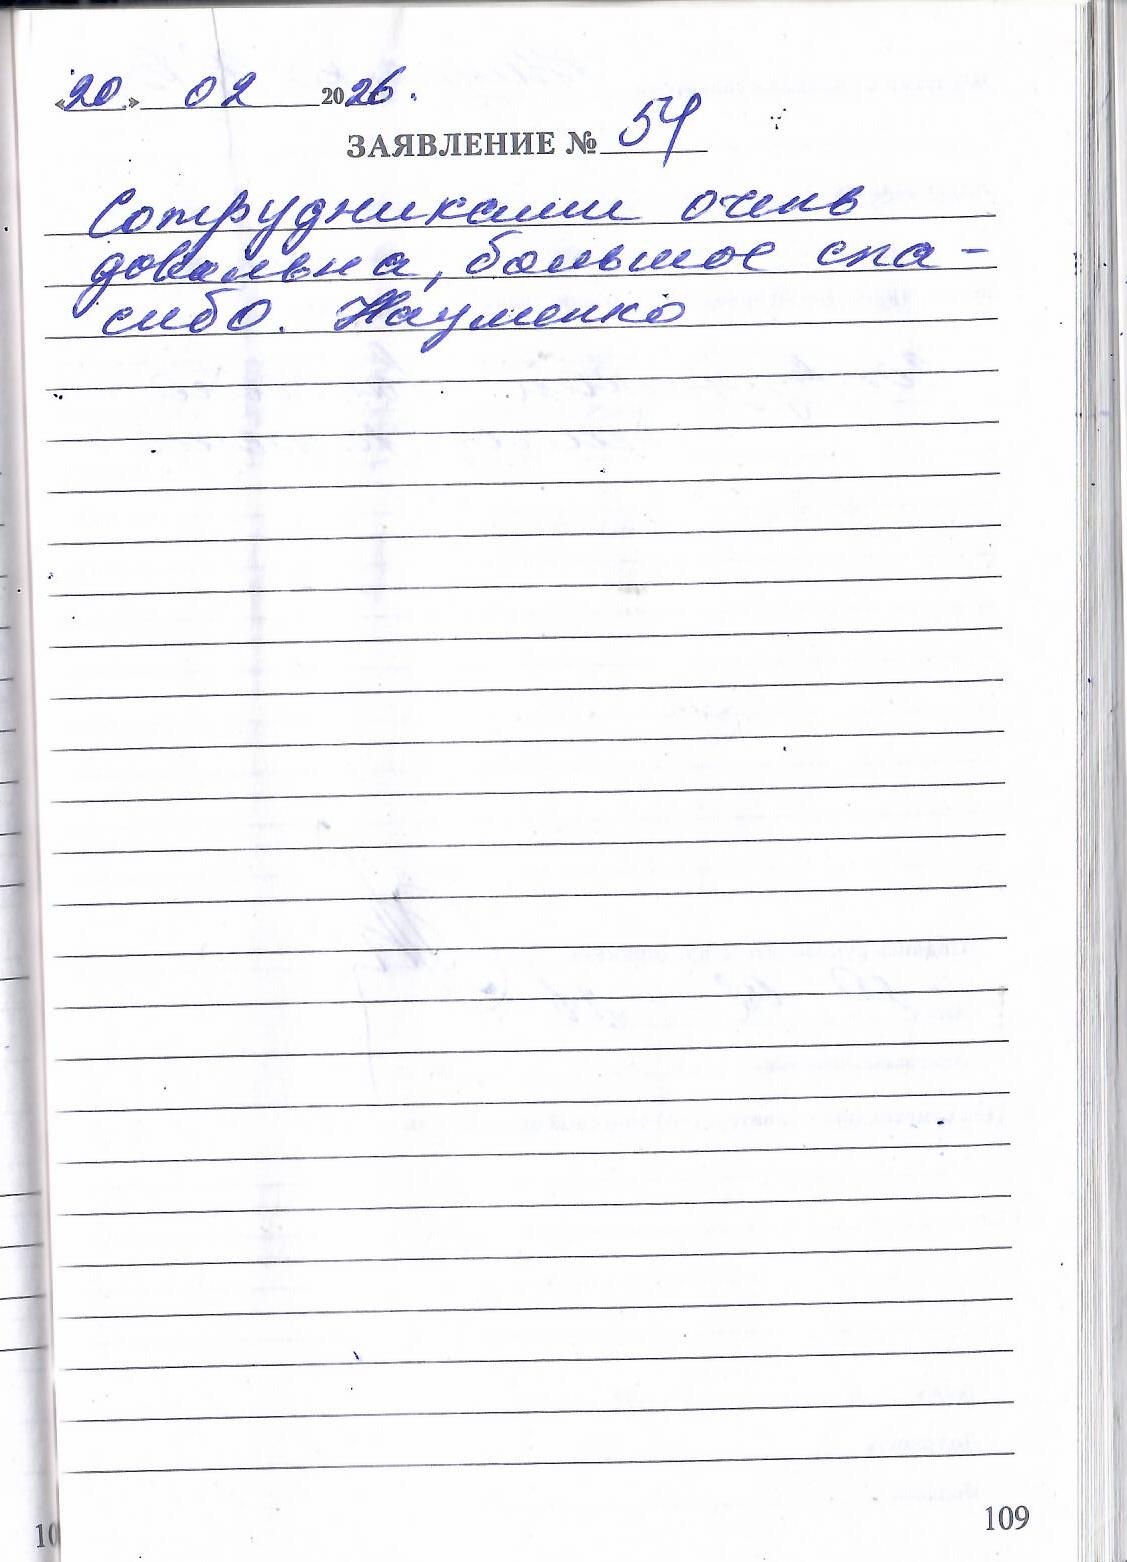 «20» 02 2026.
ЗАЯВЛЕНИЕ № 54
Сотрудниками очень
довольна, большое спа-
сибо. Науменко
109